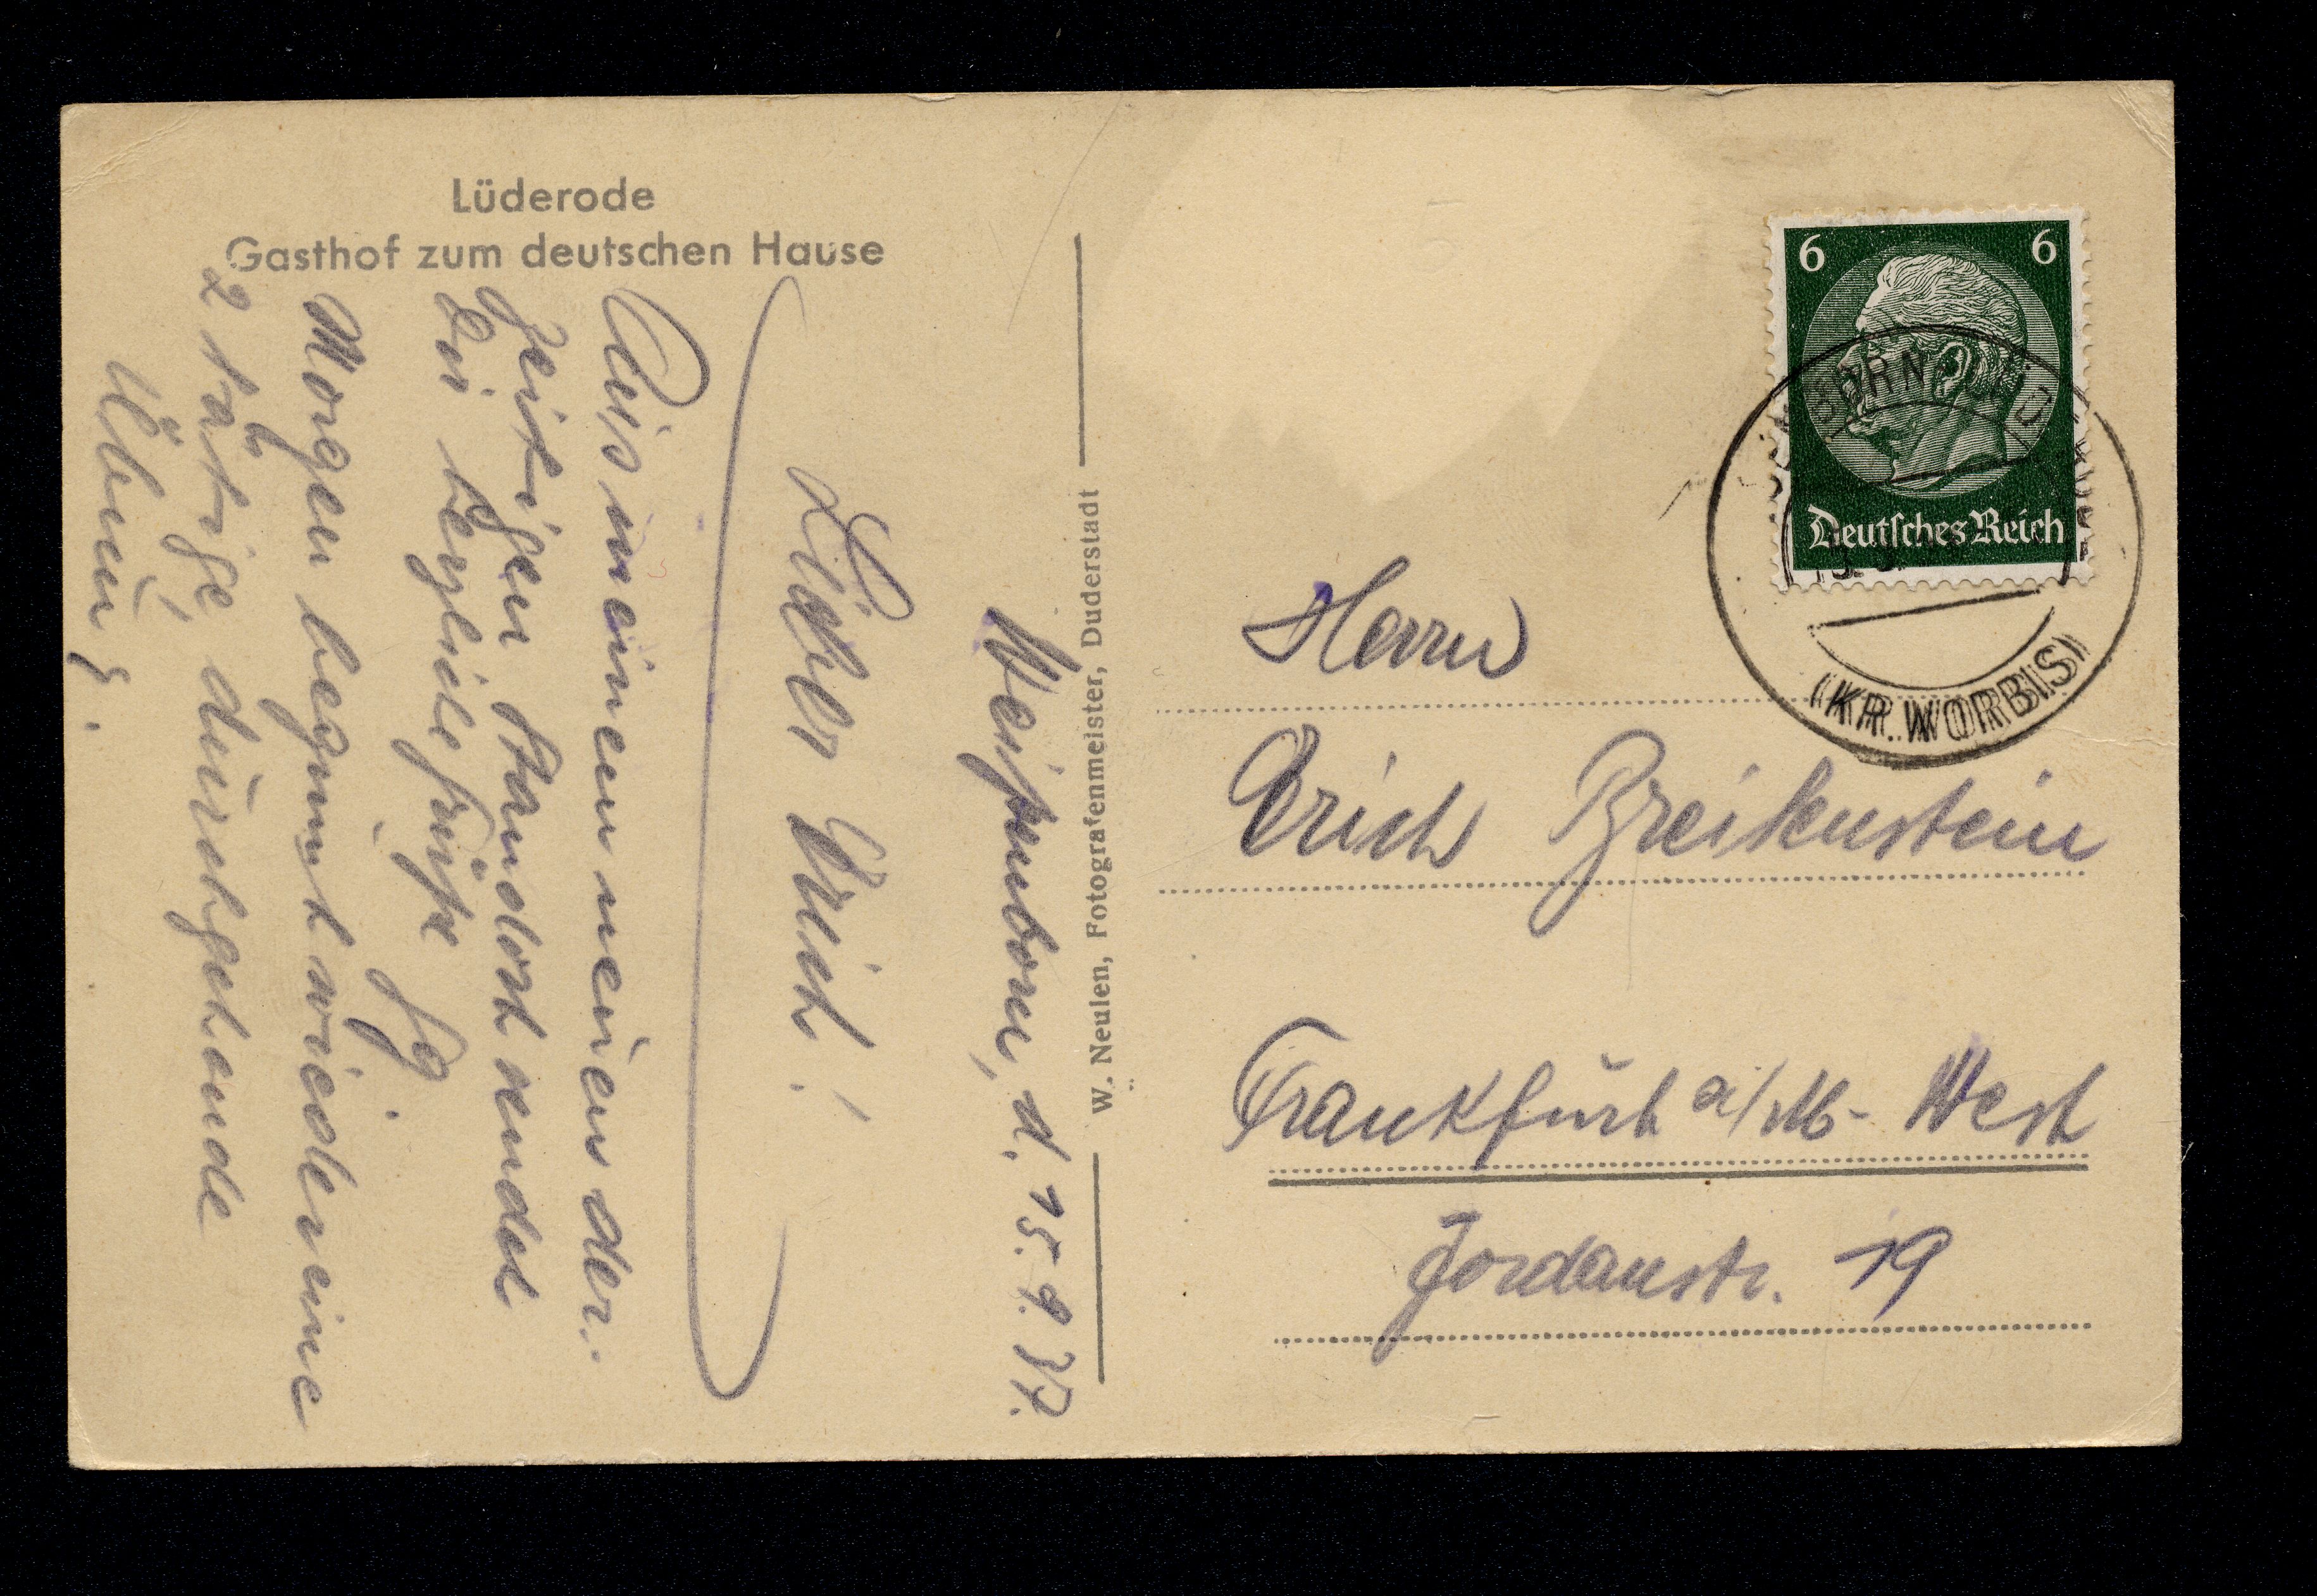 Lüderode
Gasthof zum deutschen Hause
Weißenborn, d. 15.9.37.
Lieber Erich!
Aus meinem neuen der-
zeitigen Standort sendet
Dir herzliche Grüße
Morgen beginnt wieder eine
2 tätige, durchgehende
Übung.
W. Neulen, Fotografenmeister, Duderstadt
6 6
Deutsches Reich
(KR. WORBIS)
Herrn
Erich Breitenstein
Frankfurt a/M- West
Jordanstr. 19